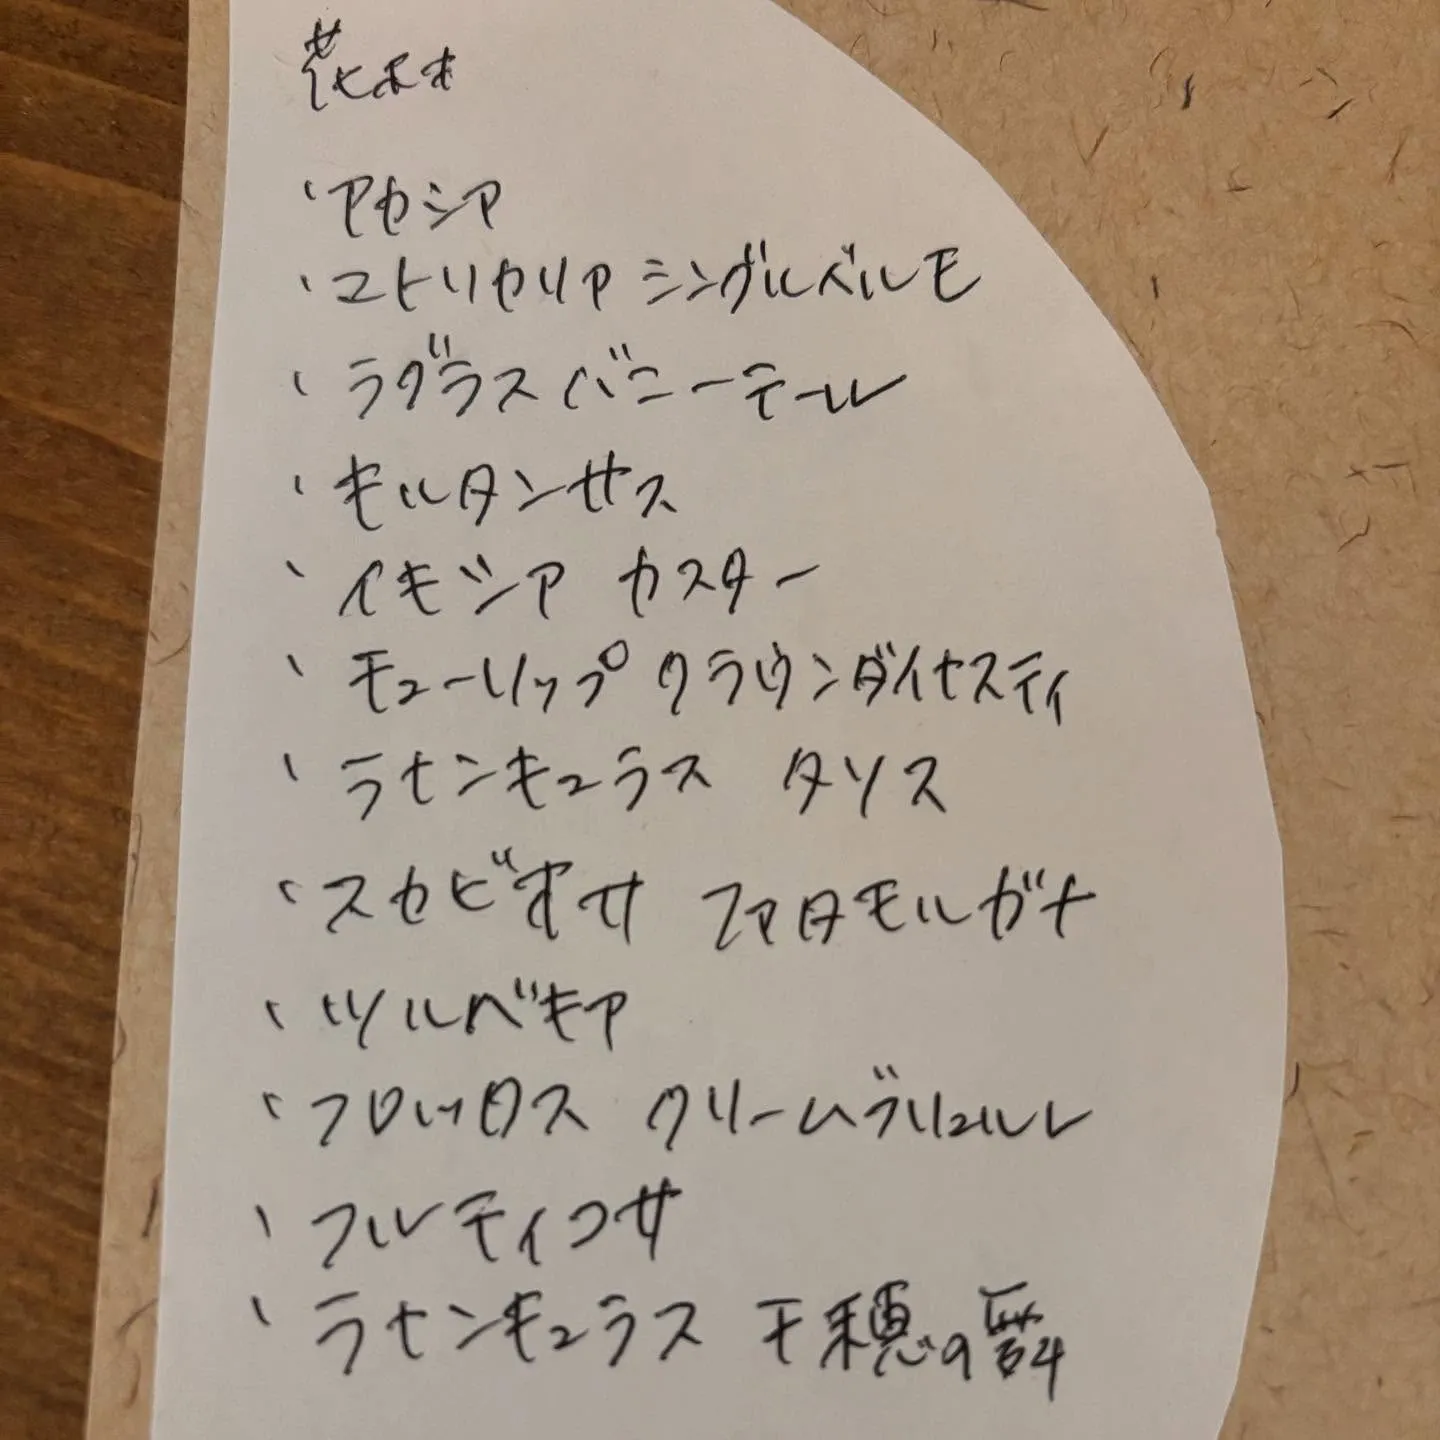 花材
・アカシア
・マトリカリア シングルベルモ
・ラグラス バニーテール
・キルタンサス
・イキシア カスター
・チューリップ クラウンダイナスティ
・ラナンキュラス タソス
・スカビオサ ファタモルガナ
・ツルバキア
・フロックス クリームブリュレ
・フルティコサ
・ラナンキュラス 千穂の舞